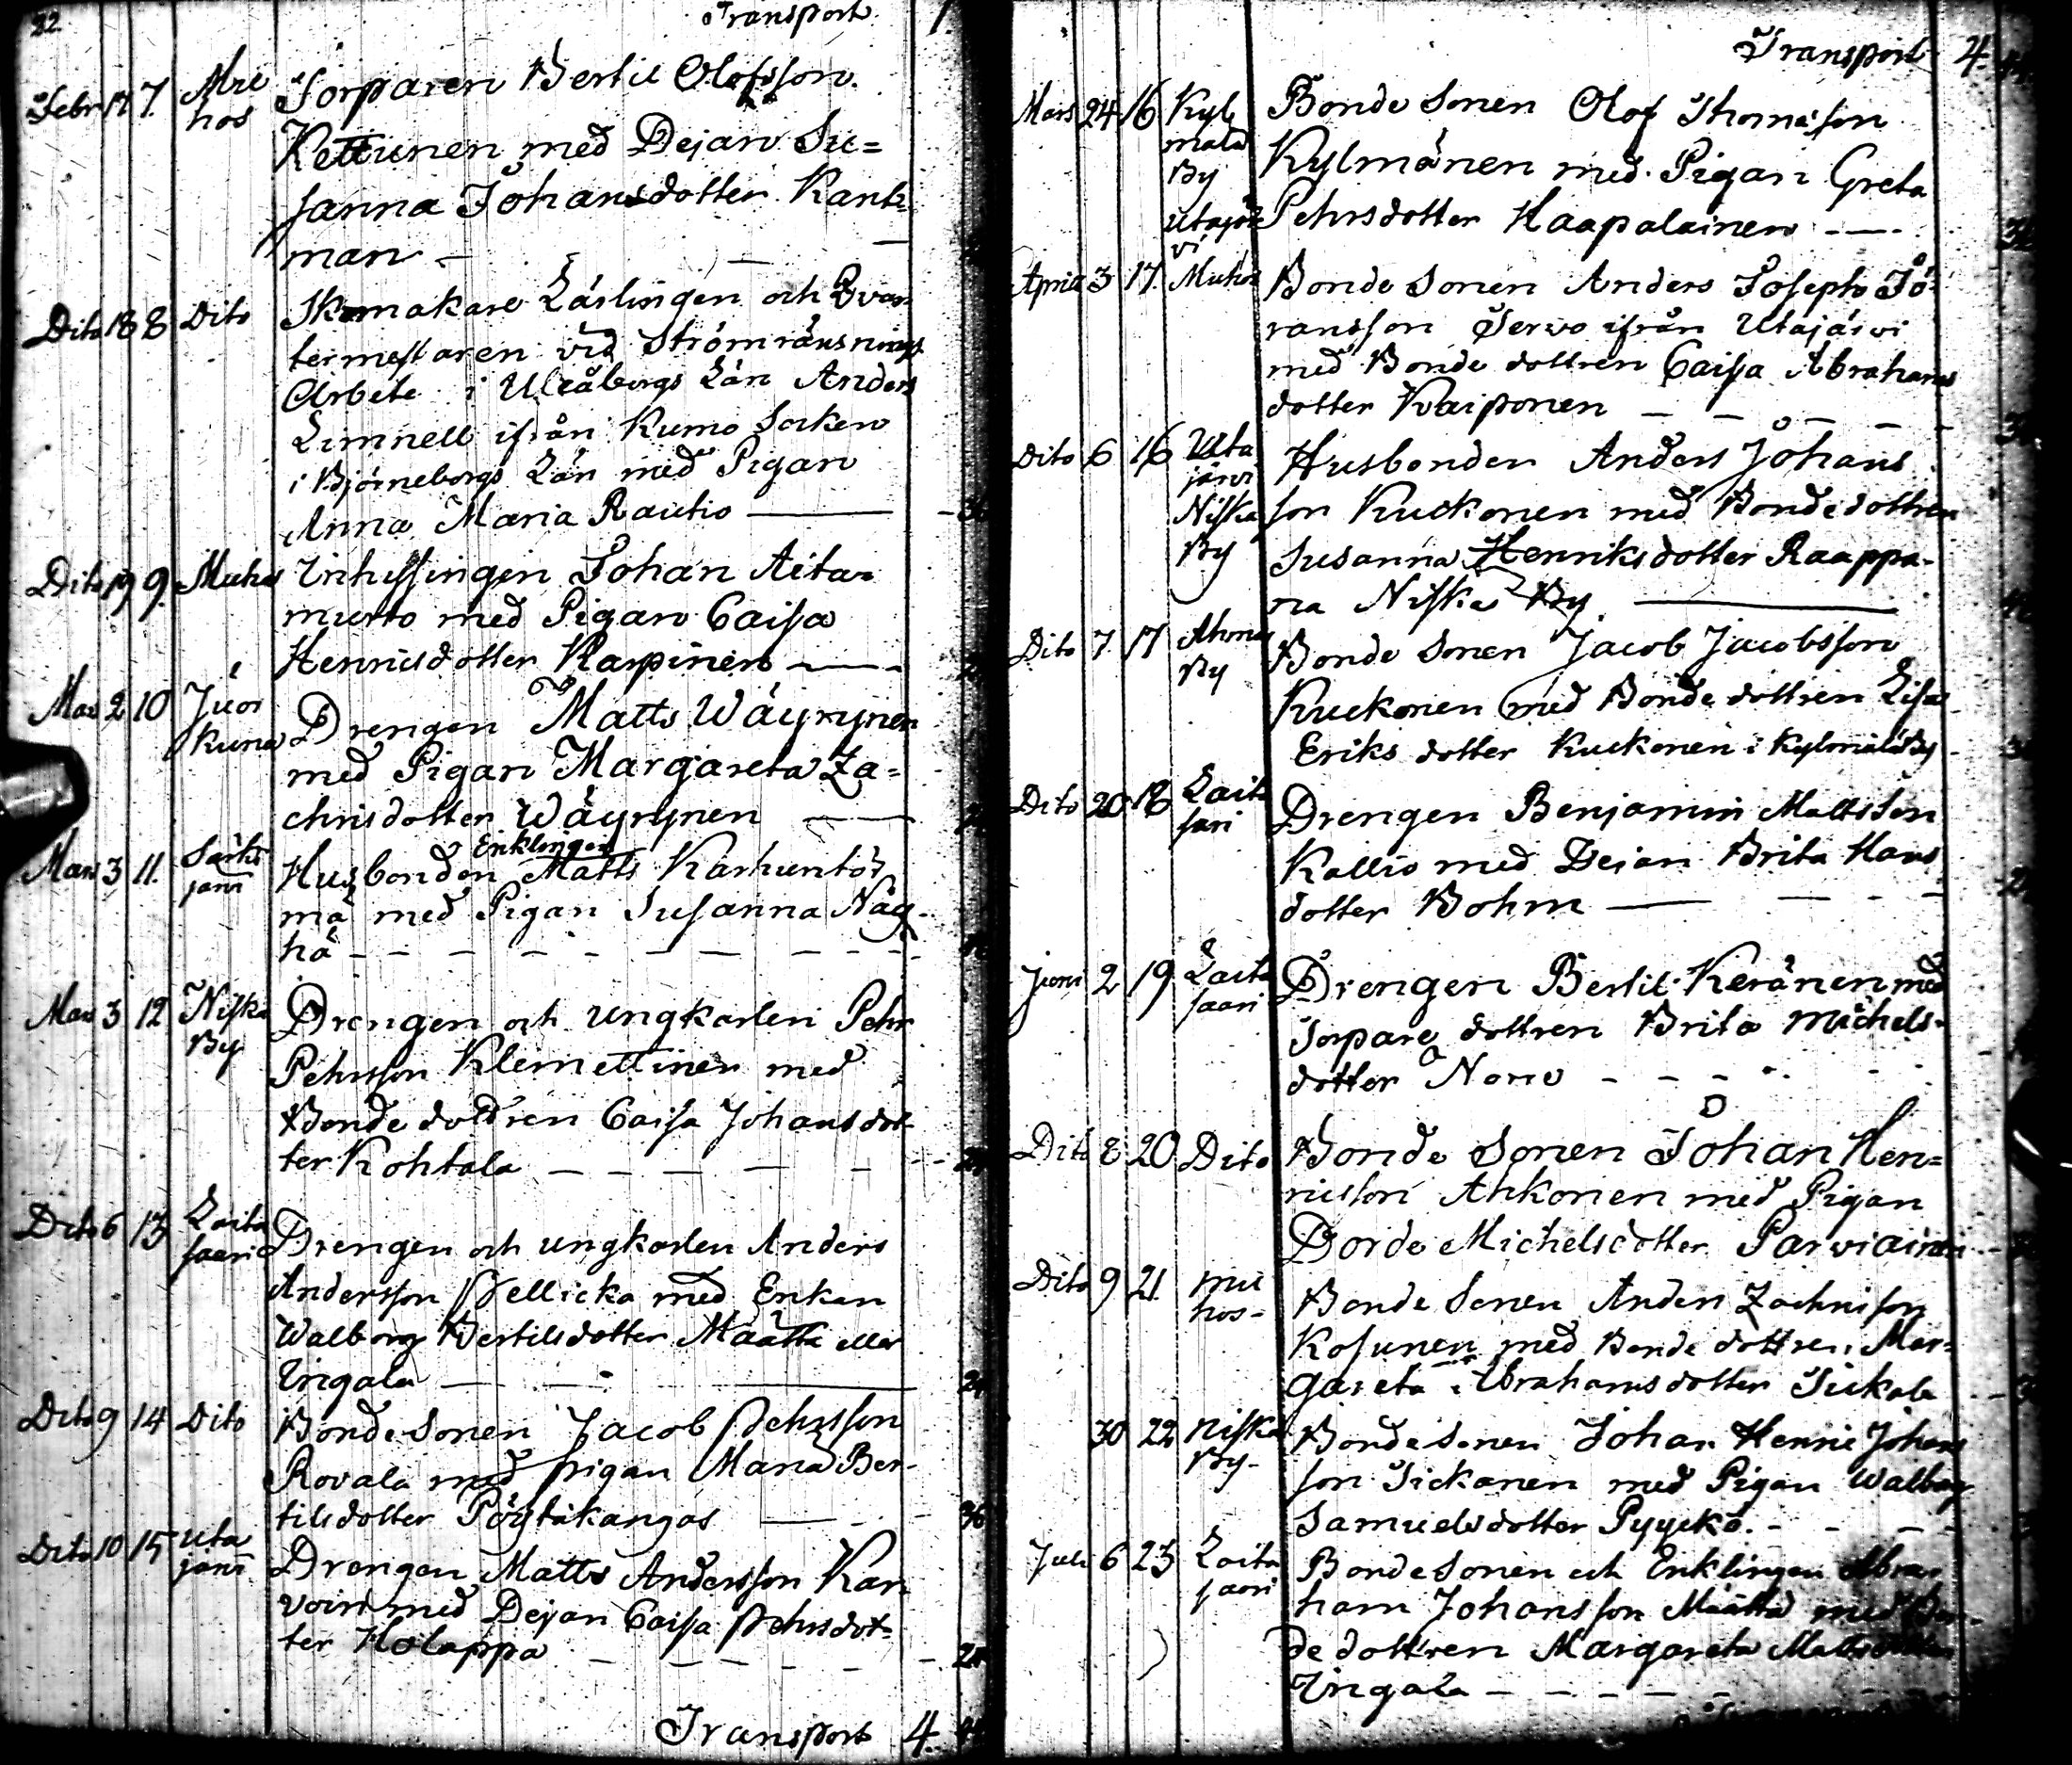 32.
Transport 1.
Febr 17 7. Mu Torparen Bertil Olofsson
hos
Kettunen med Dejan Su=
sanna Johansdotter Kank
man
Dito 18 8 Dito Skomakare Lärlingen och Qvar
termestaren vid Strömränsnings
Arbete i Uleåborgs Län Anders
Limnell ifrån Kumo Socken
i Björneborgs Län med Pigan
Anna Maria Rautio
Dito 19 9. Muhos Inhyssingen Johan Aita=
murto med Pigan Caisa
Henricsdotter Karpinen
Mars 2 10 Juor
kuna Drengen Matts Wäyrynen
med Pigan Margareta Za=
chrisdotter Wäyrynen
Enklingen
Mars 3 11. Särki Husbonden Matts Karhuntör
järvi
mä med Pigan Susanna Näg
hä
Mars 3 12 Niska Drengen och Ungkarlen Pehr
By
Pehrsson Klemettinen med
Bonde dottren Caisa Johansdot-
ter Kohtala
Dito 6 13 Laita Drengen och ungkarlen Anders
saari
Andersson Pellicka med Enkan
Walborg Bertilsdotter Määtta eller
Ungala
Dito 9 14 Dito Bonde Sonen Jacob Pehrsson
Rovala med pigan Maria Ber-
tilsdotter Pöytäkangas 36
Dito 10 15 Uta Drengen Matts Andersson Kar
järvi
voin med Dejan Caisa Pehrsdot=
ter Holappa
Transport 4.
Transport 4.
Mars 24 16 Kyl Bonde Sonen Olof Thomasson
mälä
By Kylmänen med Pigan Greta
Utajär Pehrsdotter Haapalainen
vi
April 3 17. Muhos Bonde Sonen Anders Josephs Jö
ransson Terwo ifrån Utajärvi
med Bonde dottren Caisa Abrahams
dotter Kaiponen
Dito 6 16 Uta Husbonden Anders Johans
järvi
Niska son Kuckonen med Bonde dottren
By Susanna Henriksdotter Raappa-
na Niska By
Dito 7 17 Ahmas Bonde Sonen Jacob Jacobsson
By
Kuckonen med Bonde dottren Lisa
Eriks dotter Kuckonen i Kylmälä By
Dito 20 18 Laita Drengen Benjamin Mattsson
sari
Kallio med Dejan Brita Hans
dotter Bohm
Juni 2 19 Laita Drengen Bertil Keränen med
saari
Torpare dottren Brita Michels-
dotter Noro
Dito 8 20 Dito Bonde Sonen Johan Hen=
ricsson Ahkonen med Pigan
Dorde Michelsdotter Parviainen
Dito 9 21 mu Bonde Sonen Anders Zachrisson
hos-
Kosunen med Bonde dottren Mar=
gareta Abrahamsdotter Tickala
30 22 Niska Bonde Sonen Johan Henric Johans
By-
son Tickanen med Pigan Walborg
Samuelsdotter Pyyckö.
Juli 6 23 Laita Bonde Sonen och Enklingen Abra
saari
ham Johansson Määtta med Bon-
de dottren Margareta Mattsdotter
Ungala